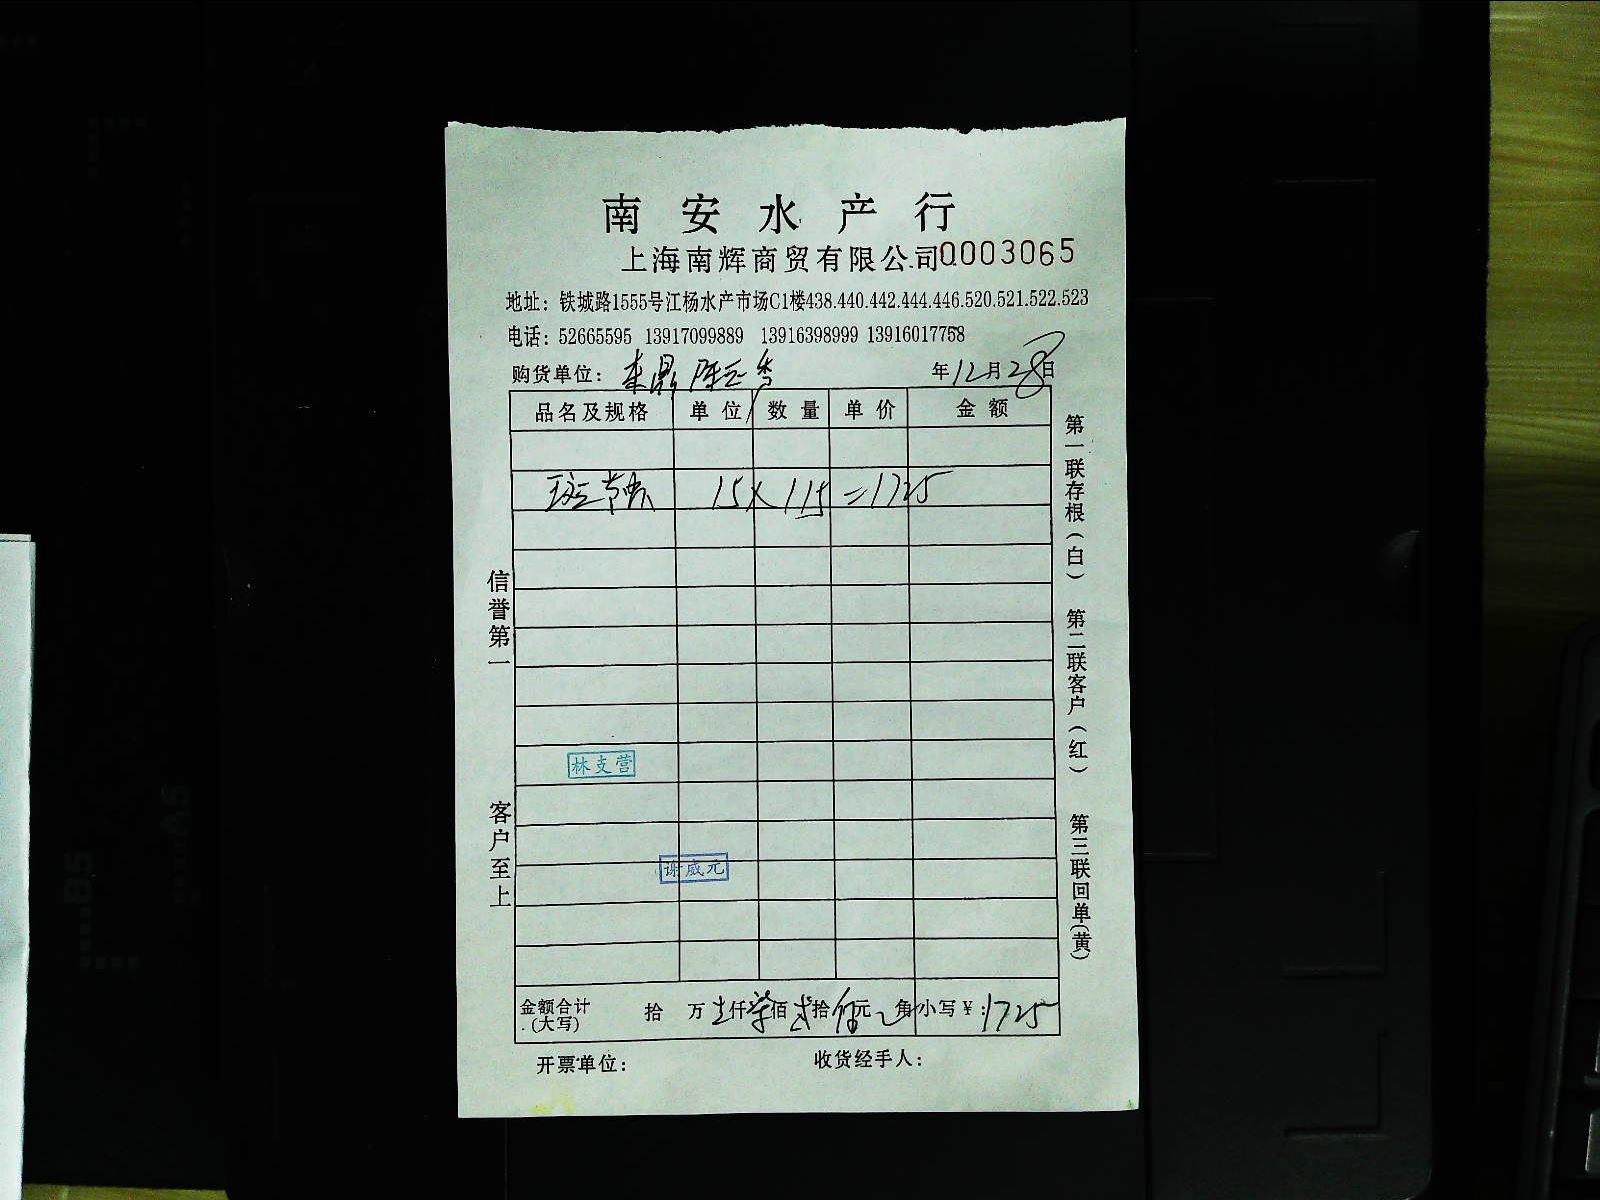 南安水产行
上海南辉商贸有限公司 0003065
地址：铁城路1555号江杨水产市场C1楼438.440.442.444.446.520.521.522.523
电话：52665595 13917099889 13916398999 13916017758
购货单位： 年12月28日
品名及规格 单位 数量 单价 金额
斑节虾 15×115=1725
林支营
谢威元
金额合计(大写) 拾 万 壹仟柒佰贰拾伍元 角 小写￥：1725
开票单位： 收货经手人：
信誉第一
客户至上
第一联存根(白) 第二联客户(红) 第三联回单(黄)
B5
A5